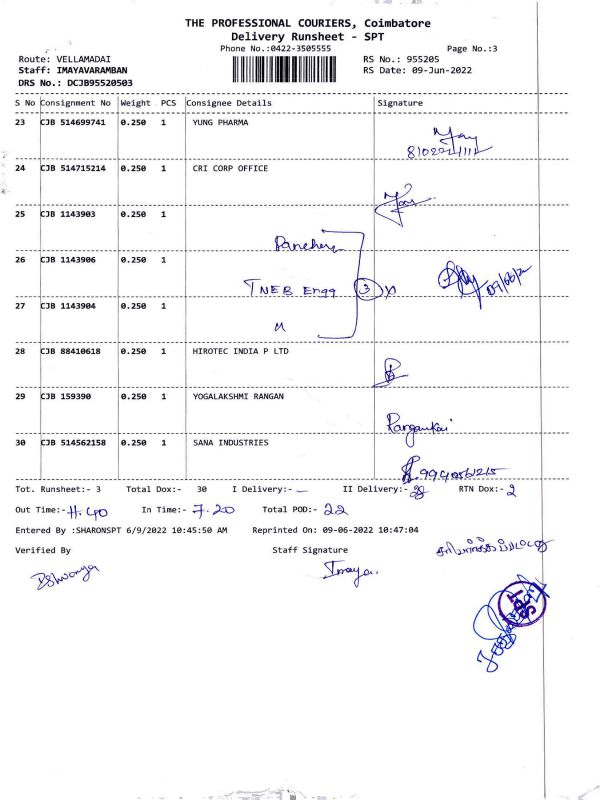 THE PROFESSIONAL COURIERS, Coimbatore
Delivery Runsheet - SPT
Phone No.:0422-3505555
Page No.:3
Route: VELLAMADAI
RS No.: 955205
Staff: IMAYAVARAMBAN
RS Date: 09-Jun-2022
DRS No.: DCJB95520503
S No Consignment No Weight PCS Consignee Details Signature
23 CJB 514699741 0.250 1 YUNG PHARMA
24 CJB 514715214 0.250 1 CRI CORP OFFICE
25 CJB 1143903 0.250 1
26 CJB 1143906 0.250 1
TNEB Engg 3
09/06/22
27 CJB 1143904 0.250 1
28 CJB 88410618 0.250 1 HIROTEC INDIA P LTD
29 CJB 159390 0.250 1 YOGALAKSHMI RANGAN
30 CJB 514562158 0.250 1 SANA INDUSTRIES
Tot. Runsheet:- 3 Total Dox:- 30 I Delivery:- II Delivery:- RTN Dox:- 2
Out Time:- 11.40 In Time:- 7.20 Total POD:- 22
Entered By :SHARONSPT 6/9/2022 10:45:50 AM Reprinted On: 09-06-2022 10:47:04
Verified By Staff Signature
Imaya.
SPT